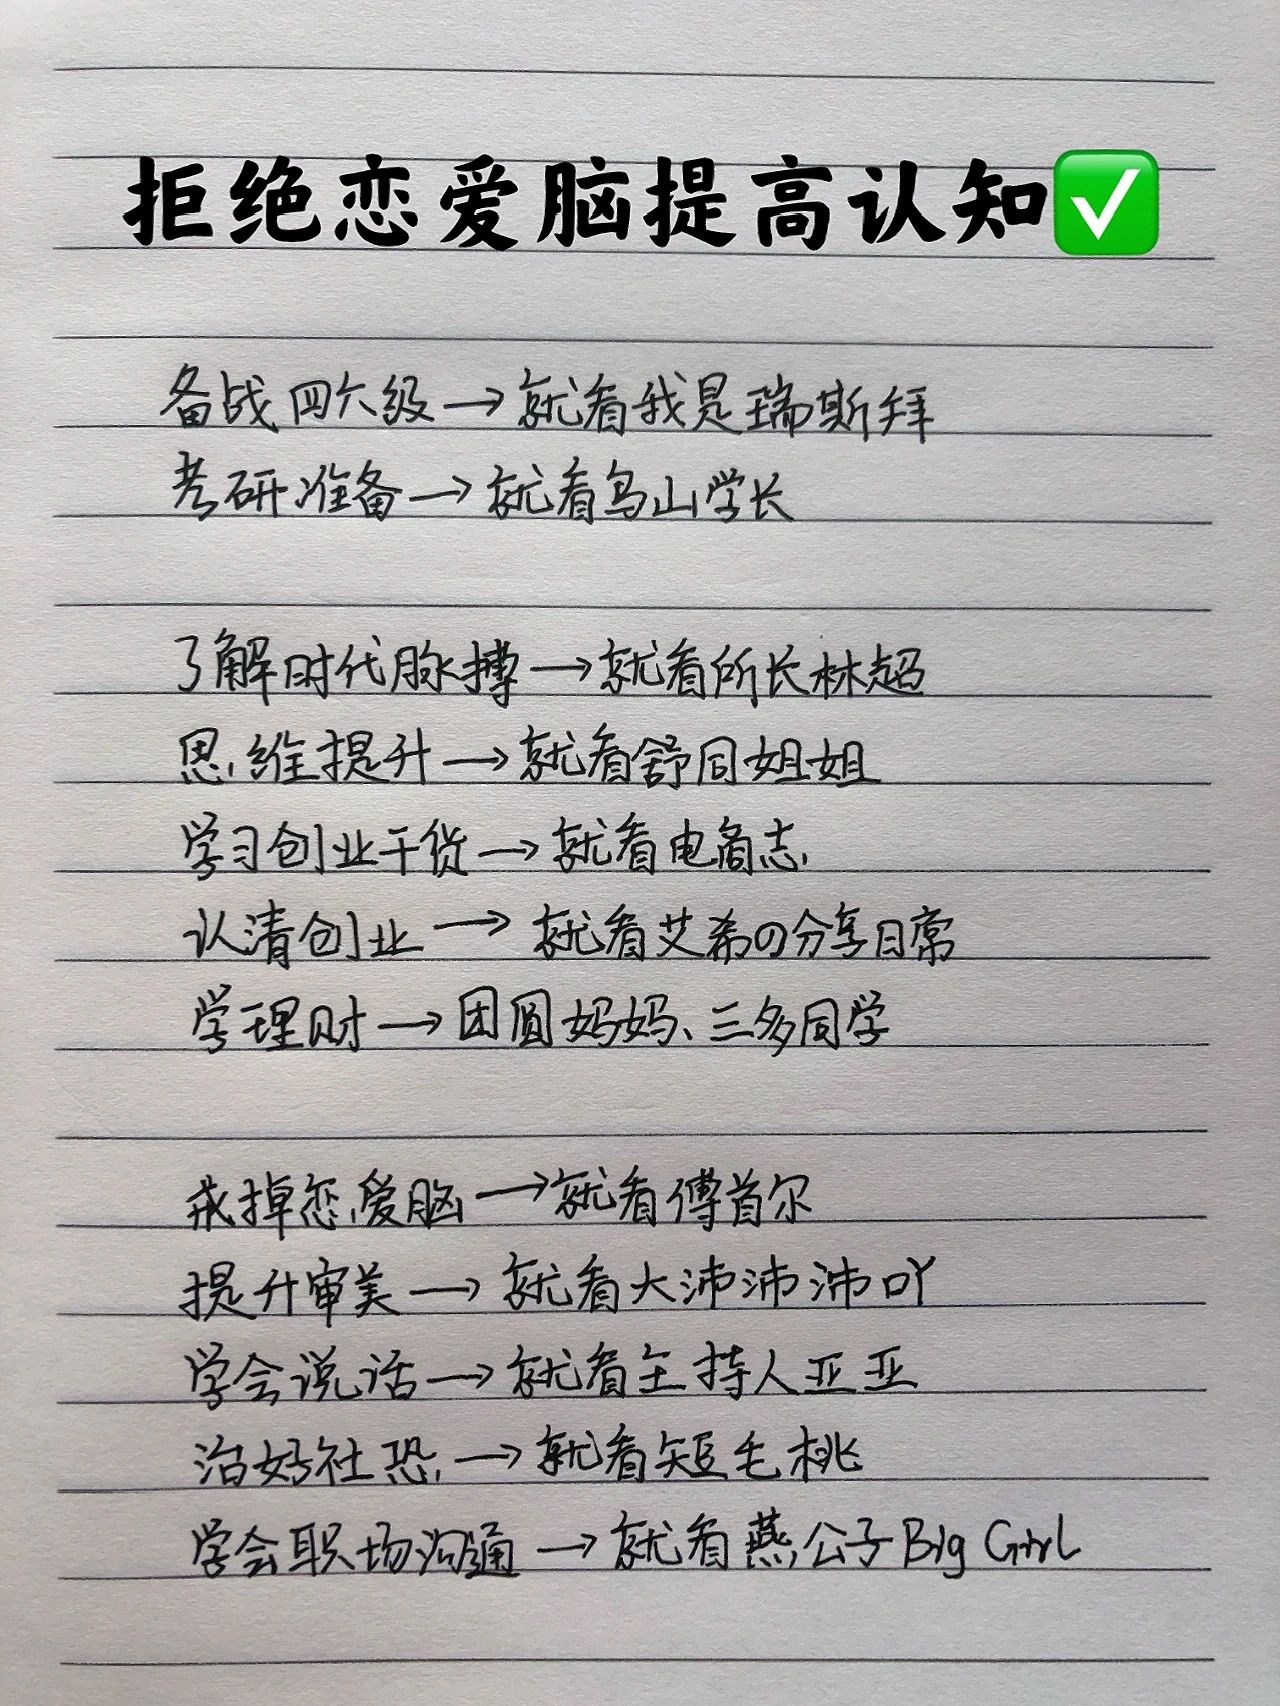 拒绝恋爱脑提高认知✅
备战四六级→就看我是瑞斯拜
考研准备→就看乌山学长
了解时代脉搏→就看所长林超
思维提升→就看舒同姐姐
学习创业干货→就看电商志
认清创业→就看艾希の分享日常
学理财→团圆妈妈、三多同学
戒掉恋爱脑→就看傅首尔
提升审美→就看大沛沛沛吖
学会说话→就看主持人亚亚
治好社恐→就看短毛桃
学会职场沟通→就看燕公子Big Girl